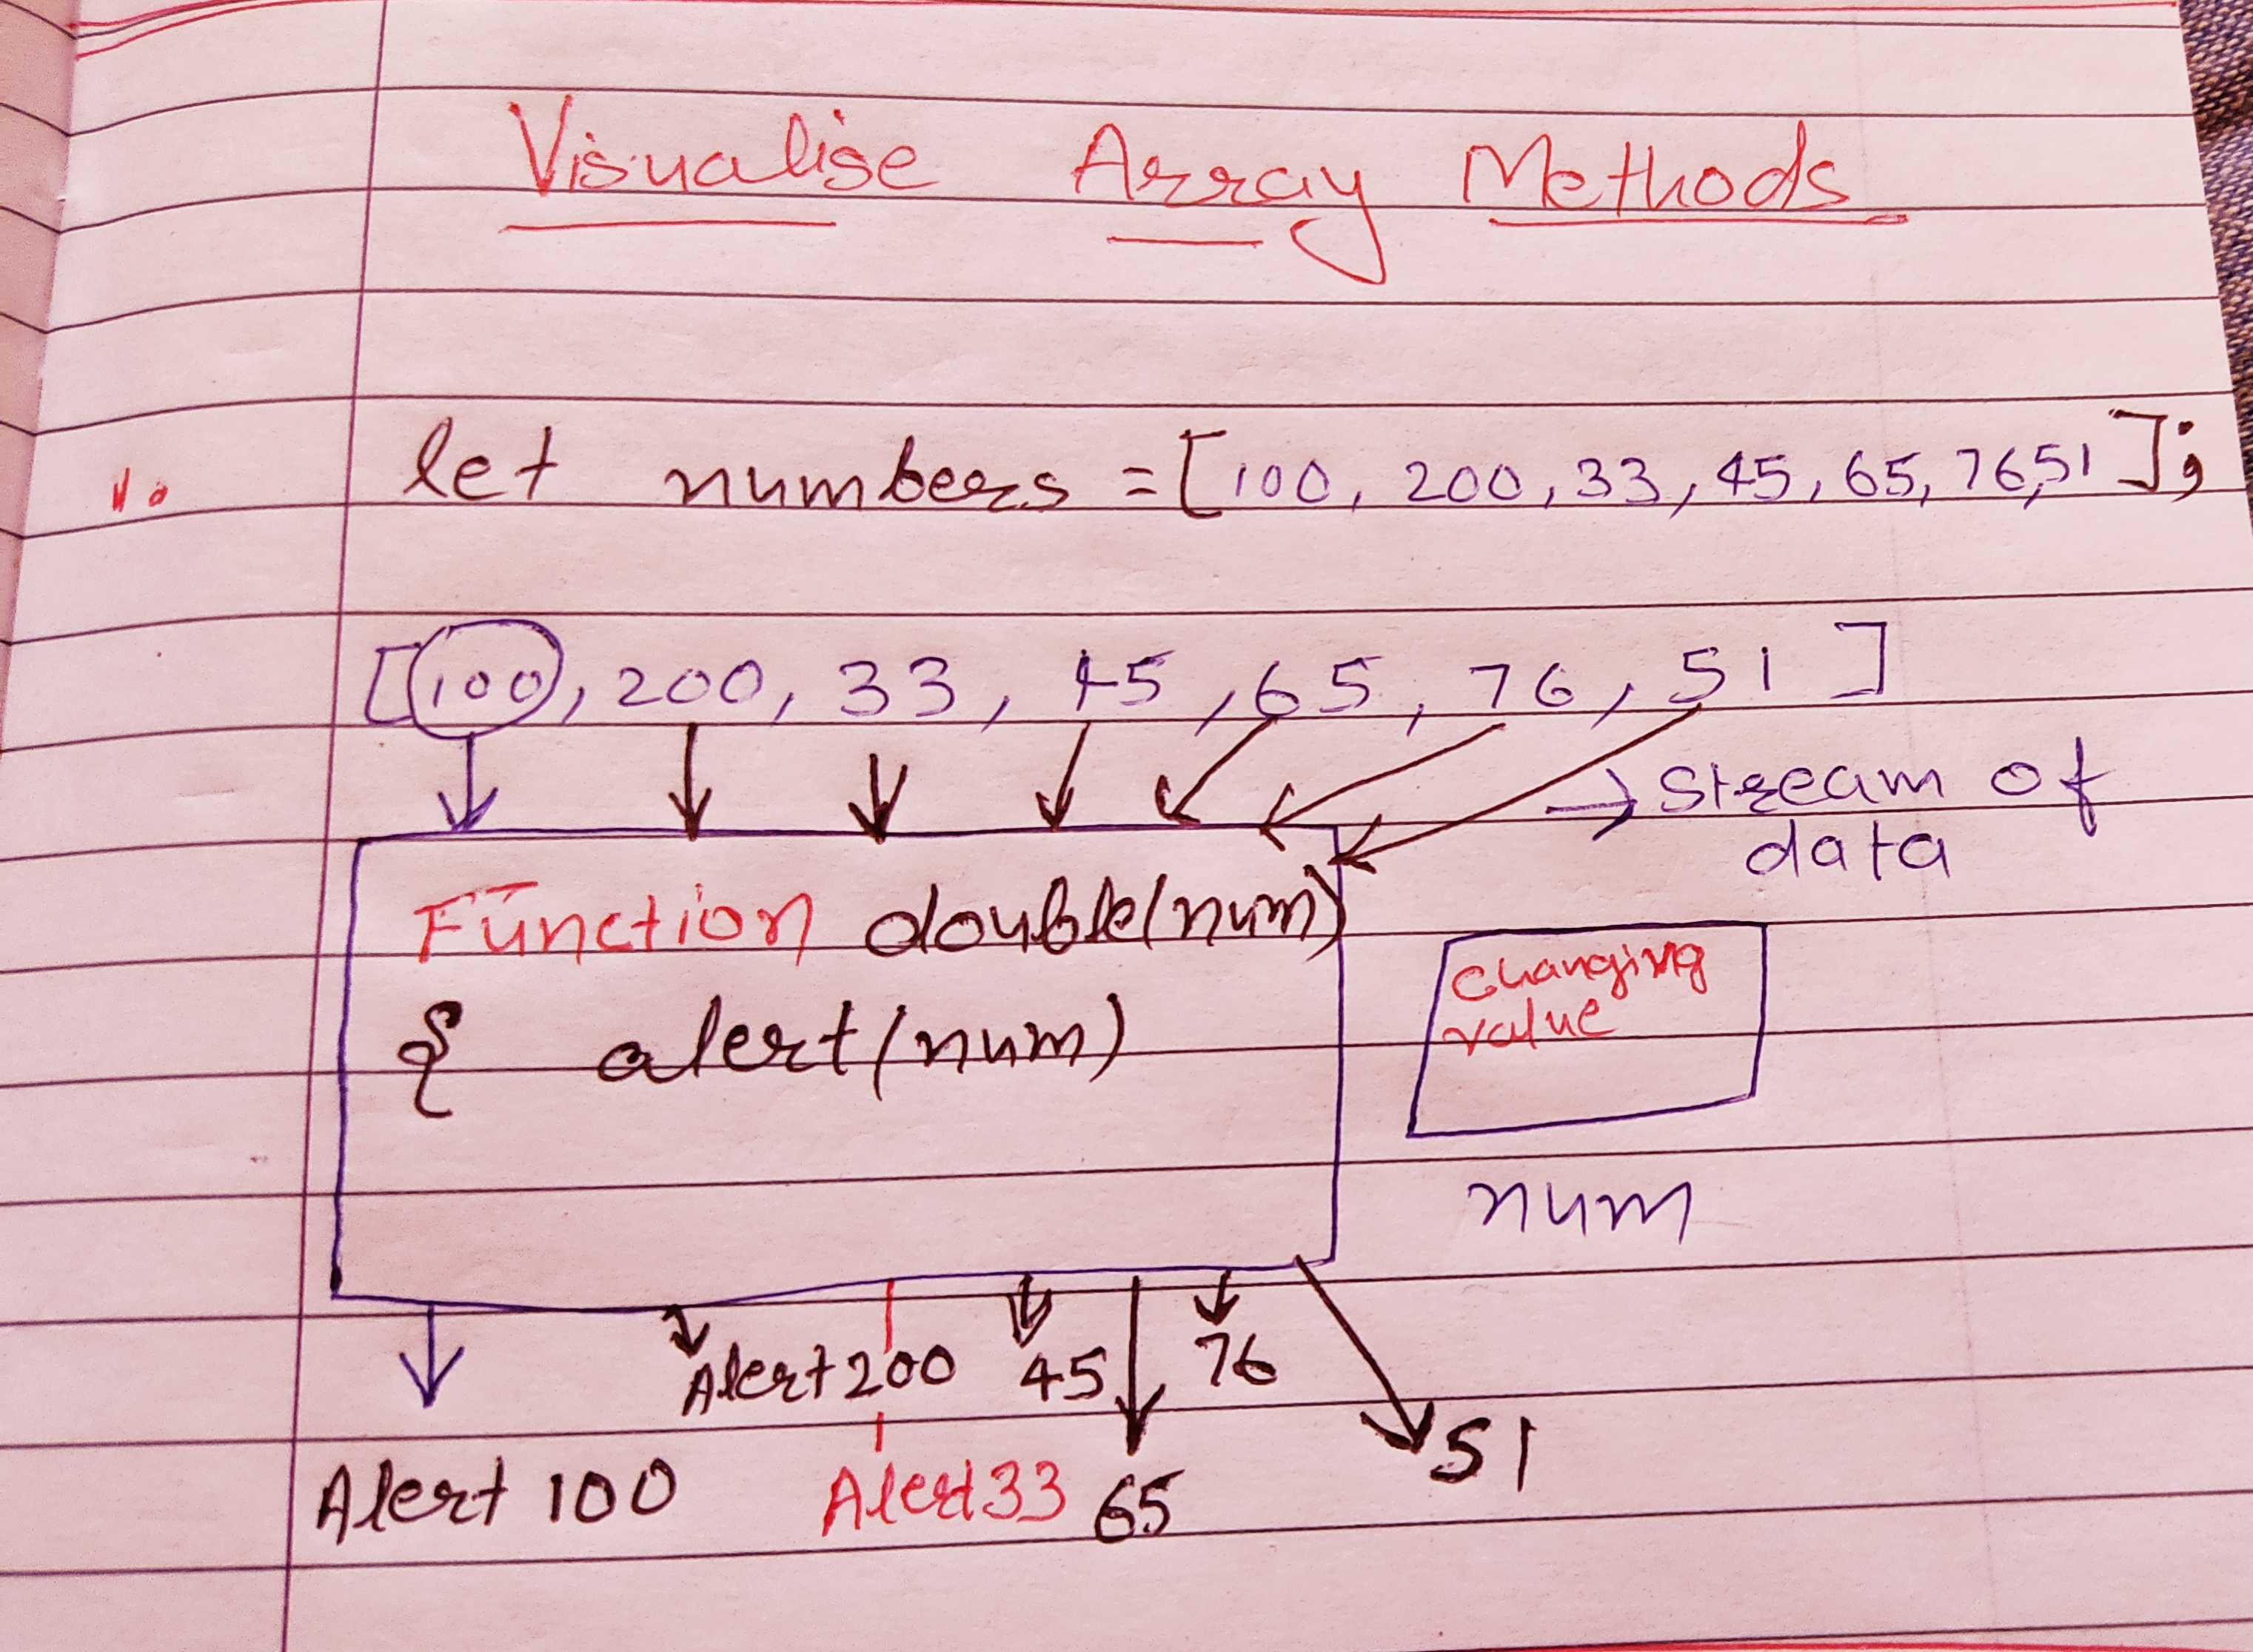 Visualise Array Methods
1. let numbers = [100, 200, 33, 45, 65, 76, 51];
[100, 200, 33, 45, 65, 76, 51]
→ Stream of
data
Function double(num)
{ alert(num)
changing
value
num
Alert 200 45 76
Alert 100 Alert 33 65 51